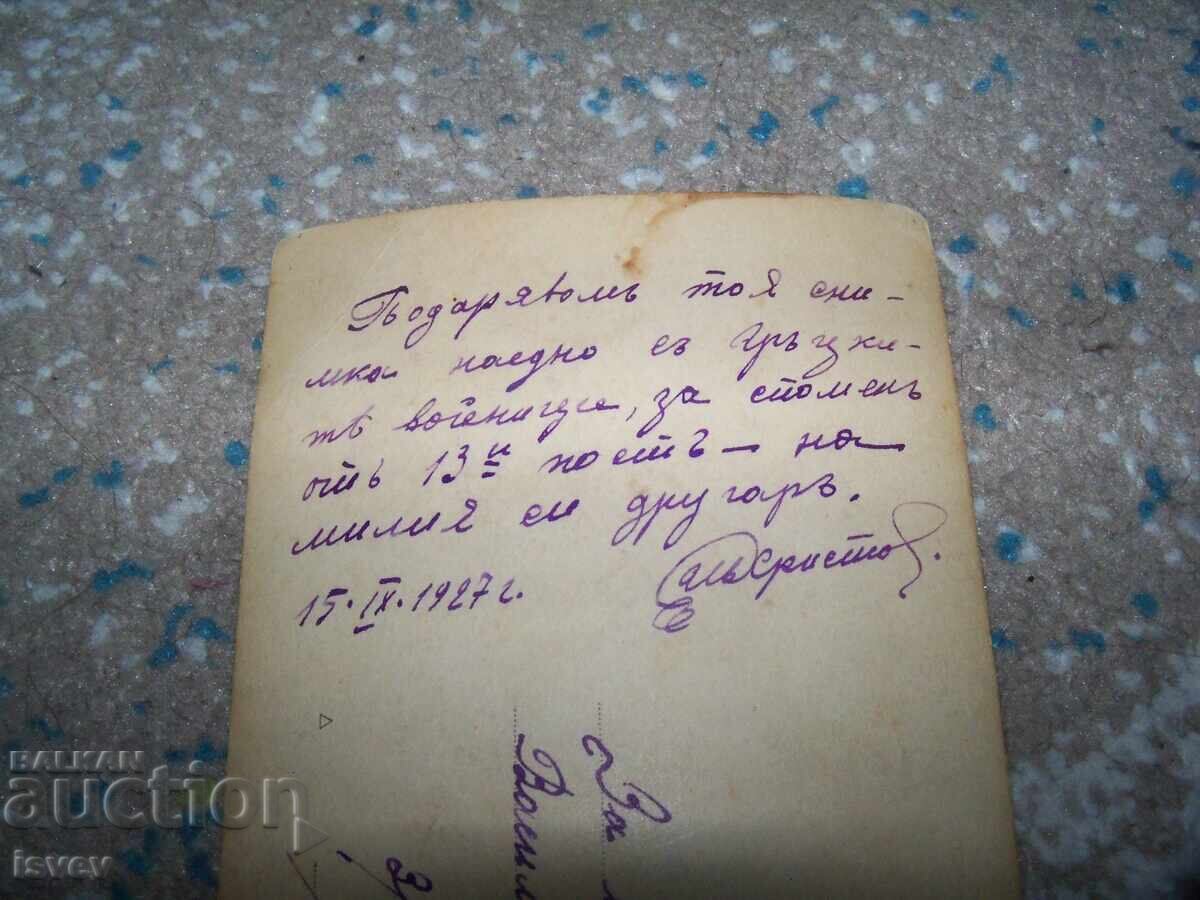 Подарявамъ тоя сни-
мка наедно съ гръцки-
тѣ войници, за споменъ
отъ 13й постъ — на
милия си другаръ.
15.IX.1927 г.
За
Васил
BALKAN
auction
isvev